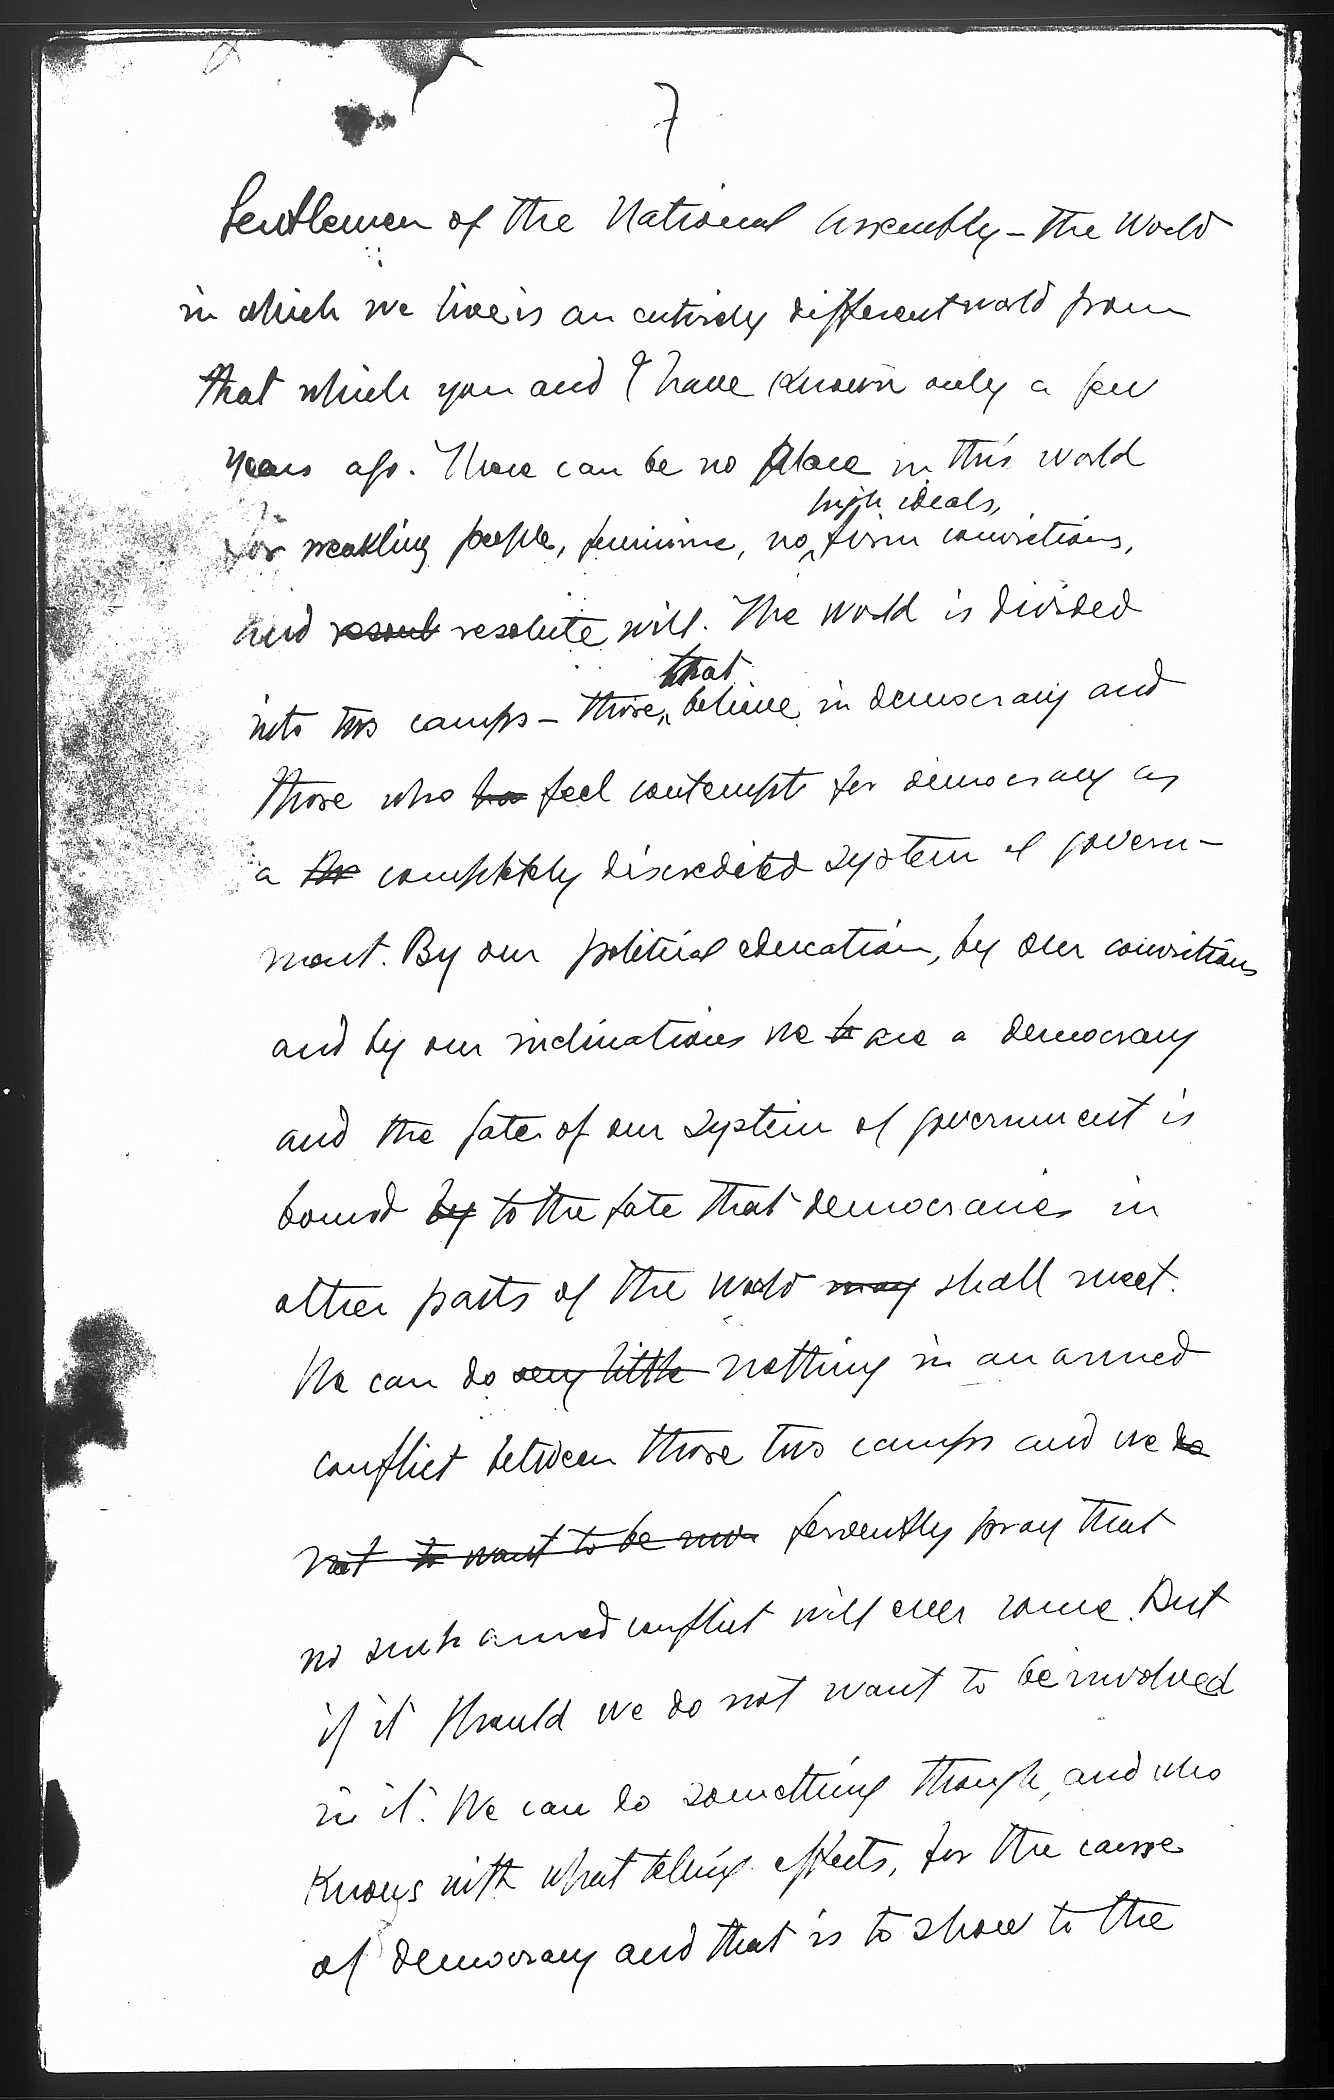 7
Gentlemen of the National Assembly - the World
in which we live is an entirely different world from
that which you and I have known only a few
years ago. There can be no place in this world
high ideals,
for weakling people, feminine, no firm convictions,
and resolute will. The world is divided
that
into two camps - those believe in democracy and
those who ha feel contempt for democracy as
a completely discredited system of govern-
ment. By our political education, by our convictions
and by our inclinations we b are a democracy
and the fate of our system of government is
bound by to the fate that democracies in
other parts of the world may shall meet.
We can do very little nothing in an armed
conflict between those two camps and we do
not to want to be fervently pray that
no such armed conflict will ever come. But
if it should we do not want to be involved
in it. We can do something though, and who
knows with what telling effects, for the cause
of democracy and that is to show to the